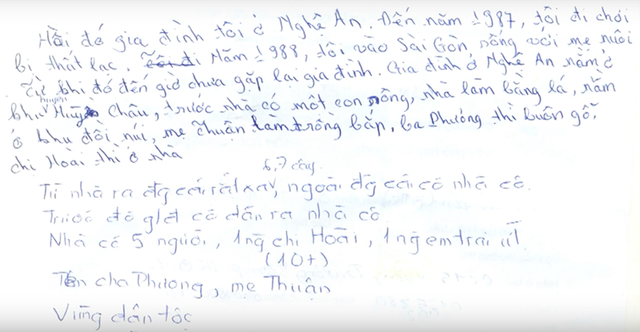 Hồi đó gia đình tôi ở Nghệ An. Đến năm 1987, tôi đi chơi
bị thất lạc. Năm 1988, tôi vào Sài Gòn, sống với mẹ nuôi
Từ khi đó đến giờ chưa gặp lại gia đình. Gia đình ở Nghệ An nằm ở
khu Huyện Châu, trước nhà có một con sông, nhà làm bằng lá, nằm
ở khu đồi núi, mẹ Thuận làm trồng bắp, ba Phương thì buôn gỗ.
chị Hoài thì ở nhà
6,7 cây
Từ nhà ra đg cái rất xa, ngoài đg cái có nhà cô.
Trước đó có dẫn ra nhà cô
Nhà có 5 người, 1 ng chị Hoài, 1 ng em trai út
(10+)
Tên cha Phương, mẹ Thuận
Vùng dân tộc